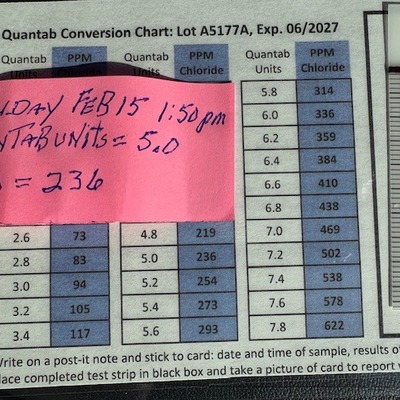 Quantab Conversion Chart: Lot A5177A, Exp. 06/2027
Quantab Units PPM Chloride Quantab Units PPM Chloride Quantab Units PPM Chloride
5.8 314
6.0 336
6.2 359
6.4 384
6.6 410
6.8 438
FEB 15 1:50pm
UNITS = 5.0
= 236
2.6 73 4.8 219 7.0 469
2.8 83 5.0 236 7.2 502
3.0 94 5.2 254 7.4 538
3.2 105 5.4 273 7.6 578
3.4 117 5.6 293 7.8 622
Write on a post-it note and stick to card: date and time of sample, results o
lace completed test strip in black box and take a picture of card to report